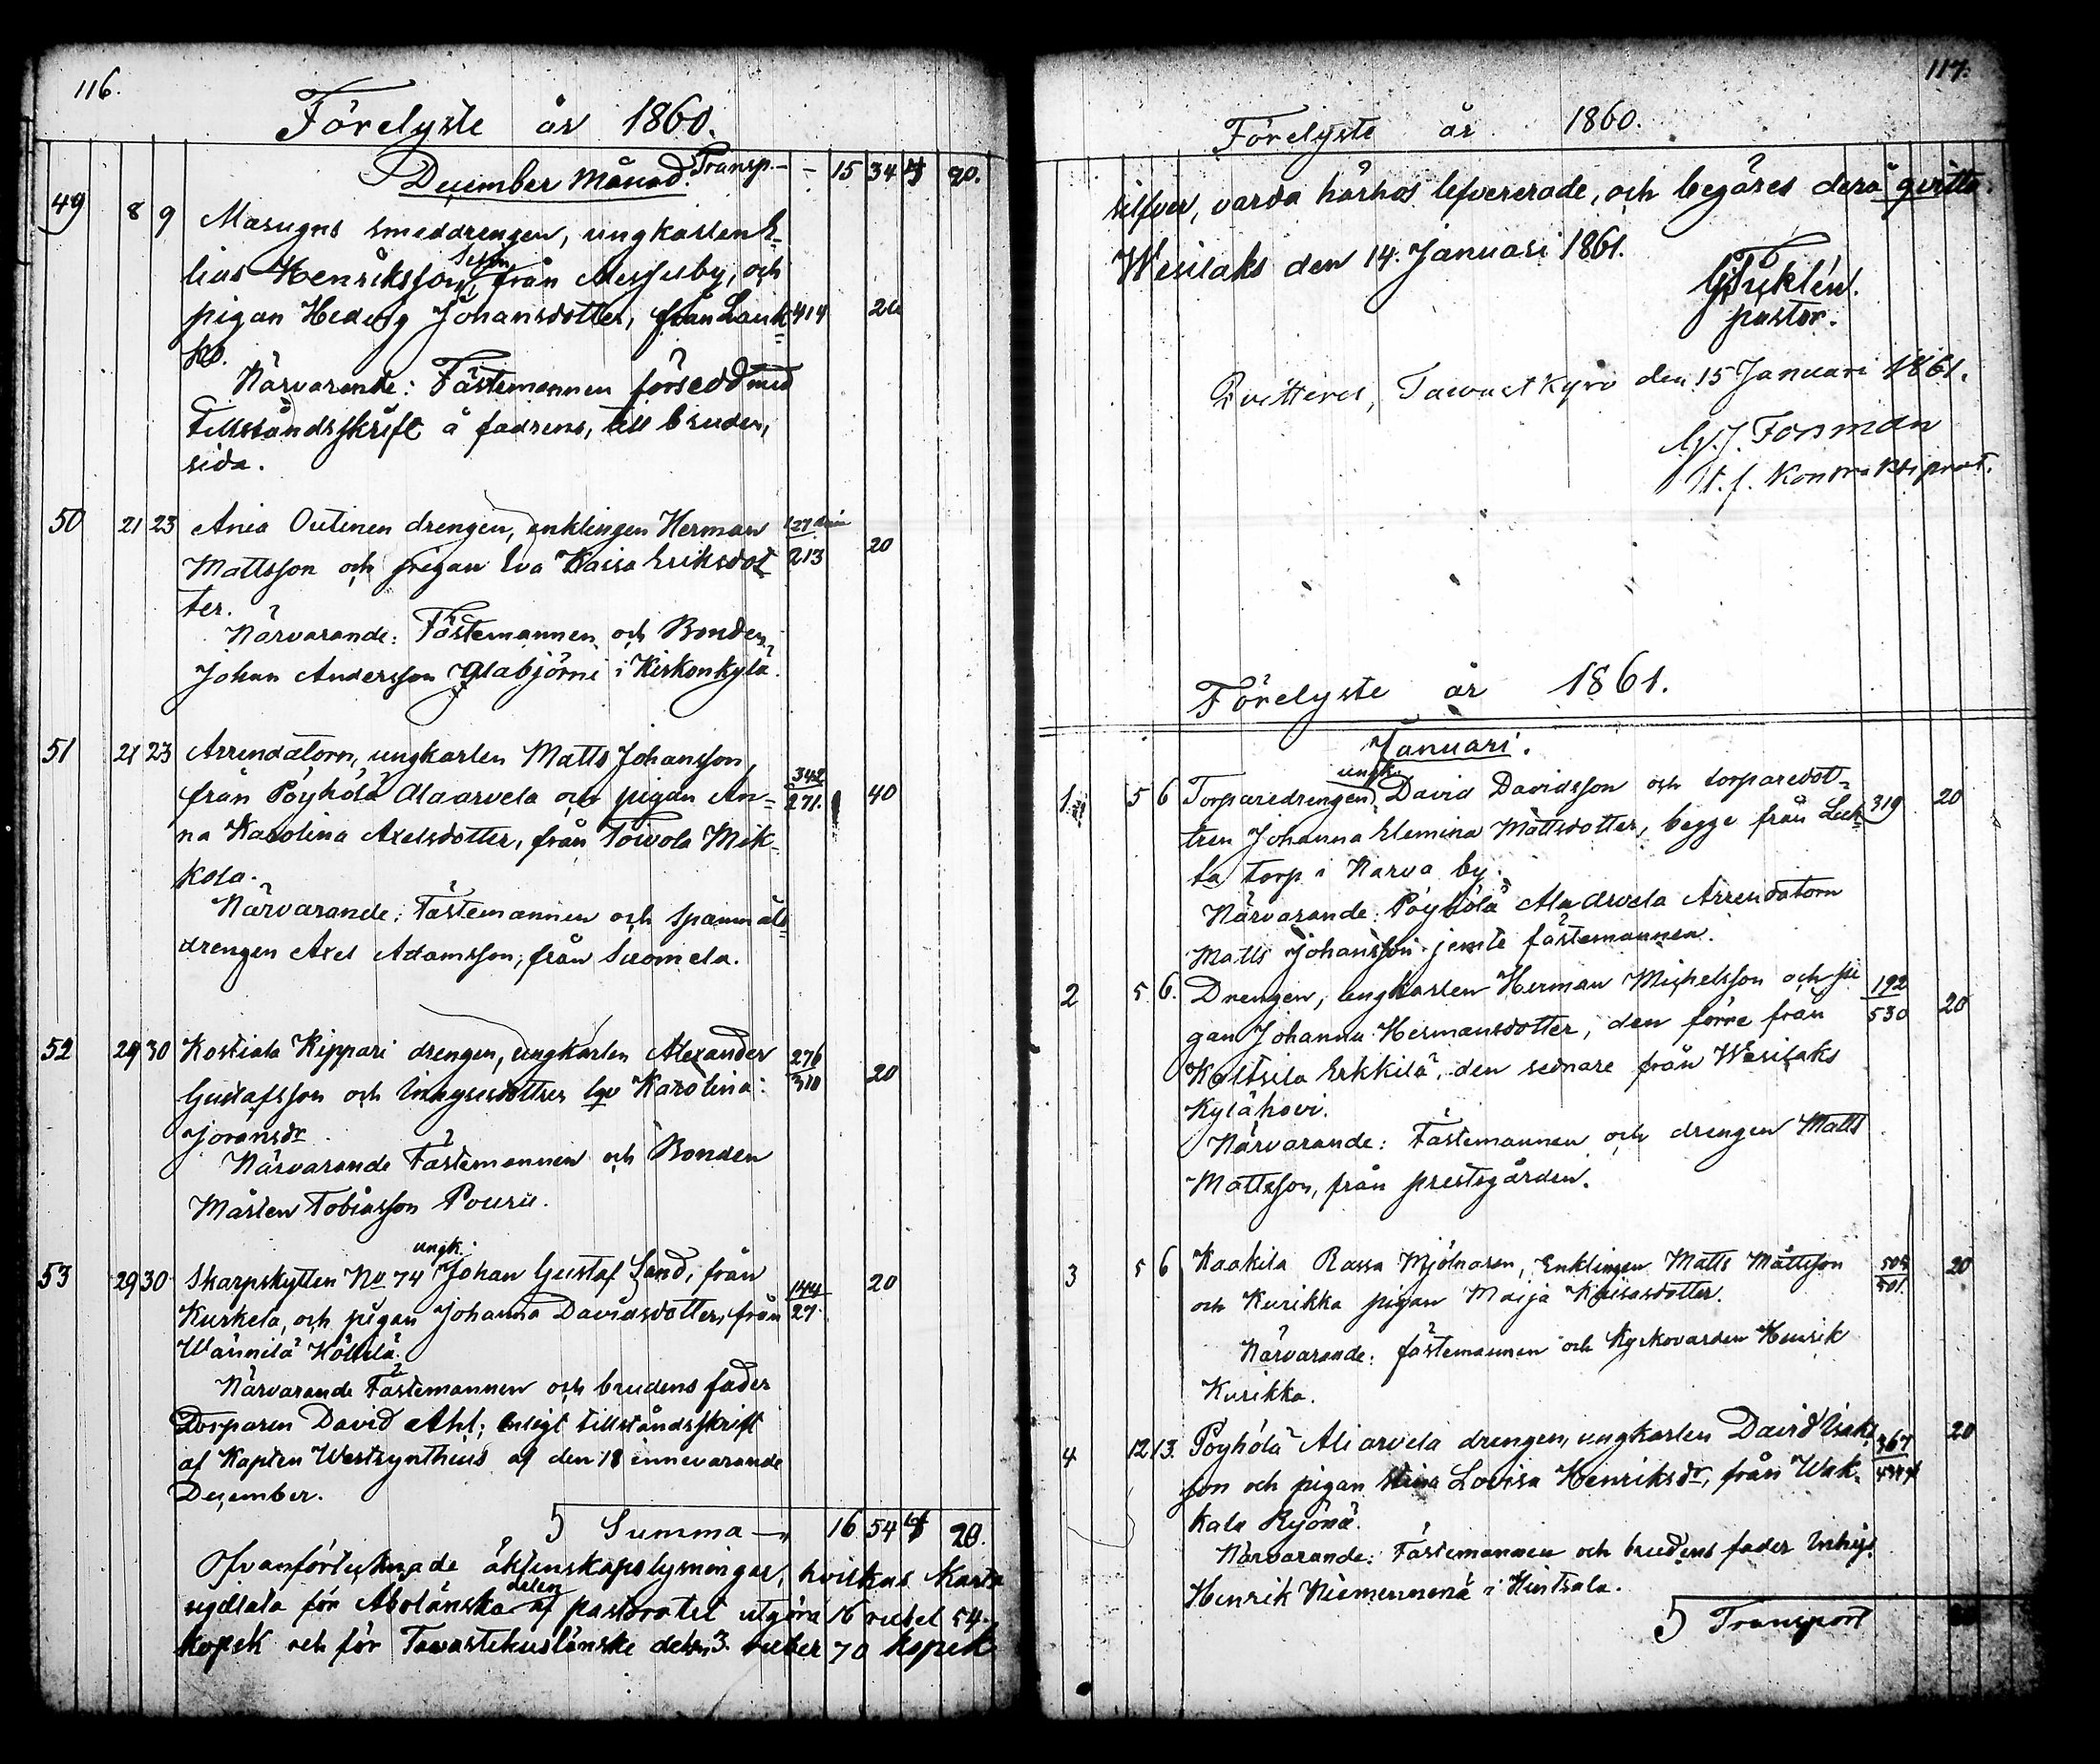 116.
Förelyste år 1860.
December Månad. Transp. — 15 34 90.
49 8 9 Masugns smeddrengen, ungkarlen E-
lias Henriksson, från och
pigan Hedvig Johansdotter, från Lauk- 414 20
ko.
Närvarande: Fästemannen försedd med
tillståndsskrift å fadrens, till bruden,
sida.
50 21 23 Ania Outinen drengen, enklingen Herman 127
Mattsson och pigan Eva Kaisa Eriksdot- 213 20
ter.
Närvarande: Fästemannen och Bonden
Johan Andersson Yllabjörni i Kirkonkylä.
51 21 23 Arrendatorn, ungkarlen Matts Johansson, 342
från Pöyhölä Alaarvela och pigan An- 271. 40
na Karolina Axelsdotter, från Toivola Mik-
kola.
Närvarande: Fästemannen och Spanmåls
drengen Axel Adamsson, från Suomela.
52 29 30 Kostiala Kippari drengen, ungkarlen Alexander 276
Gustafsson och Inhysesdottren Eva Karolina 310 20
Joransdr.
Närvarande Fästemannen och Bonden
Mårten Tobiasson Pouru.
ungk.
53 29 30 Skarpskytten No 74 Johan Gustaf Sand, från 144 20
Kurkela, och pigan Johanna Davidsdotter, från 27.
Wännilä Hölttä.
Närvarande Fästemannen och brudens fader
Torparen David Ahl; enligt tillståndsskrift
af Kapten Westsynthius af den 18 innevarande
December.
Summa — 16 54 20.
Ofvanförtecknade äktenskapslysningar, hvilkas Karta
sigillata för Abolänska delen af pastoratet utgöra 16 rubel 54
kopek och för Tavastehuslänske delen 3 rubel 70 kopek
117.
Förelyste år 1860.
silfver, varda härhos lefvererade, och begäres derå qvitto.
Wesilaks den 14. Januari 1861.
pastor.
Qvitteras, Tavastkyro den 15 Januari 1861.
Forsman
t. f. Kontraktsprost.
Förelyste år 1861.
Januari.
ungk.
1. 5 6 Torparedrengen, David Davidsson och torparedot- 319 20
tren Johanna Elemina Mattsdotter, begge från Luk-
ta torp i Narva by.
Närvarande: Pöyhölä Alaarvela Arrendatorn
Matts Johansson jemte fästemannen.
2 5 6. Drengen, ungkarlen Herman Michelsson och pi 192
gan Johanna Hermansdotter, den förre från 530 20
Koltsila Erkkilä, den sednare från Wesilaks
Kylähovi.
Närvarande: Fästemannen och drengen Matts
Mattsson, från prestgården.
3 5 6 Kaakila Rassa Mjölnaren, Enklingen Matts Mattsson 20
och Kurikka pigan Maija Kaisasdotter. 501.
Närvarande: fästemannen och Kyrkovarden Henrik
Kurikka.
4 12 13. Pöyhölä Aliarvela drengen, ungkarlen David Isaks- 367 20
son och pigan Stina Lovisa Henriksdr, från Wak-
kala Ryönä.
Närvarande: Fästemannen och brudens fader Inhys.
Henrik Niemenmaa i Hintsala.
Transport